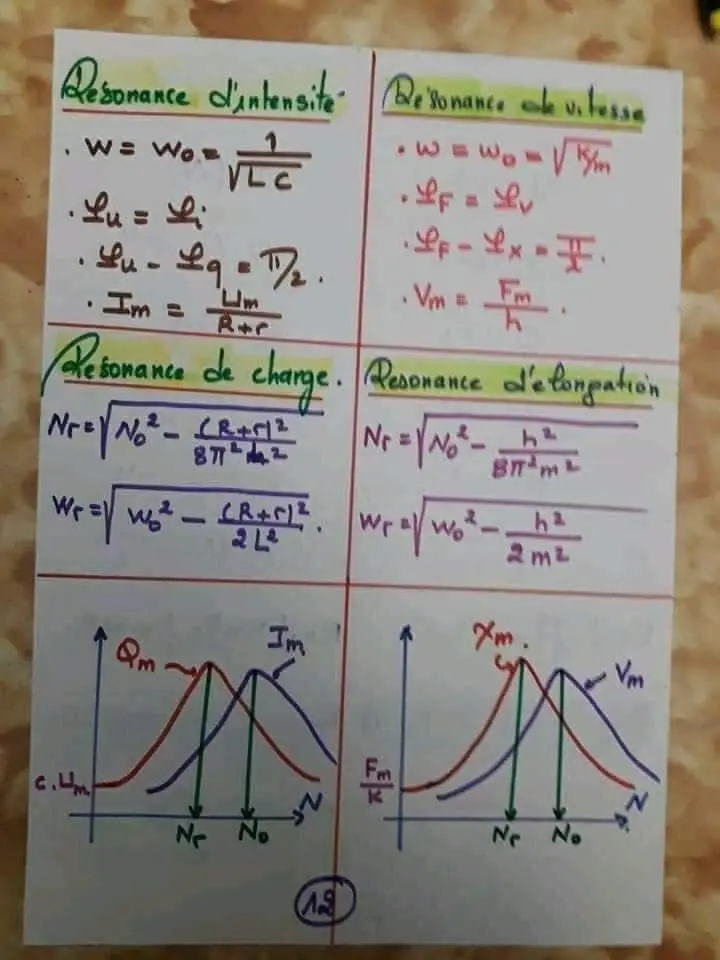 Résonance d'intensité
. W = W₀ = 1/√LC
. φu = φi
. φu - φq = π/2 .
. Im = Um/(R+r)
Résonance de vitesse
. W = W₀ = √K/m
. φF = φv
. φF - φx = π/2 .
. Vm = Fm/h .
Résonance de charge.
Nr = √N₀² - (R+r)²/8π²L²
Wr = √W₀² - (R+r)²/2L² .
Resonance d'élongation
Nr = √N₀² - h²/8π²m²
Wr = √W₀² - h²/2m²
Qm
Im
c.Um
N
Nr
N₀
Xm.
Vm
Fm/K
N
Nr
N₀
12